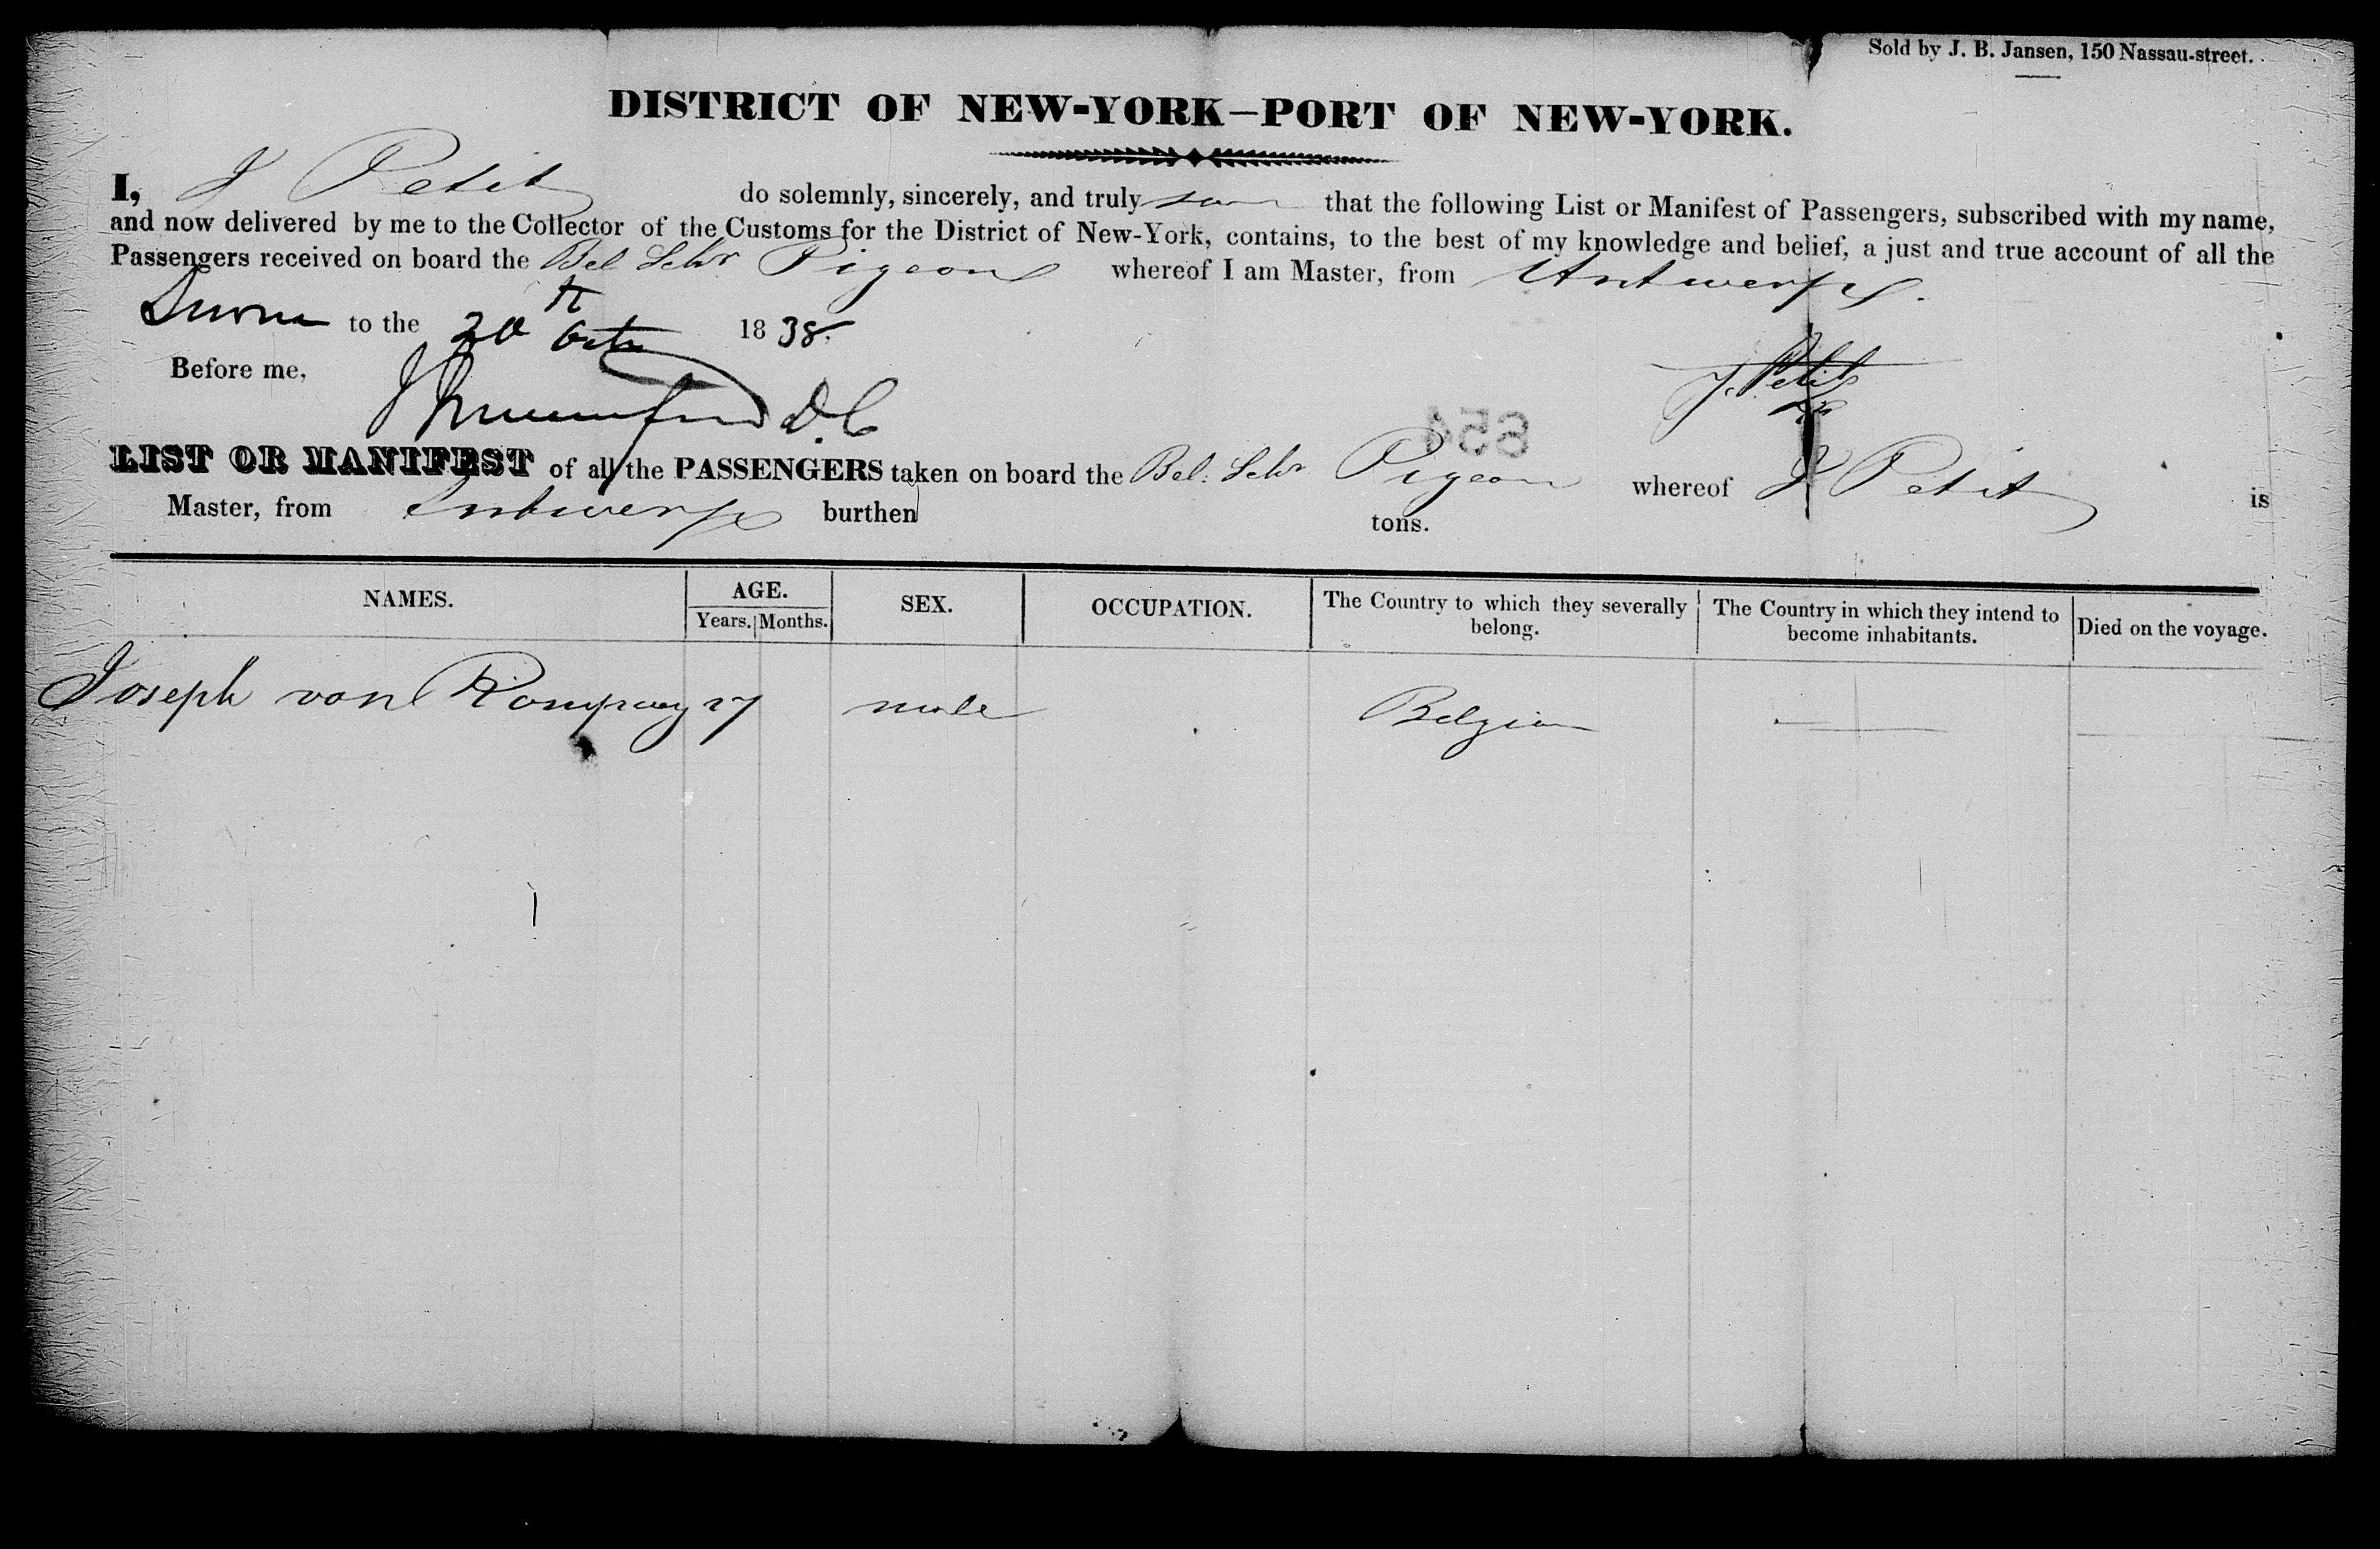 Sold by J. B. Jansen, 150 Nassau-street.
DISTRICT OF NEW-YORK—PORT OF NEW-YORK.
I, J Petit do solemnly, sincerely, and truly that the following List or Manifest of Passengers, subscribed with my name,
and now delivered by me to the Collector of the Customs for the District of New-York, contains, to the best of my knowledge and belief, a just and true account of all the
Passengers received on board the Bel Schr Pigeon whereof I am Master, from Antwerp.
Sworn to the 20th Octr 1838.
Before me, D. C
J. Petit
654
LIST OR MANIFEST of all the PASSENGERS taken on board the Bel. Schr Pigeon whereof J Petit is
Master, from Antwerp burthen tons.
NAMES. AGE. SEX. OCCUPATION. The Country to which they severally belong. The Country in which they intend to become inhabitants. Died on the voyage.
Years. Months.
Joseph van Rompaey 27 male Belgium